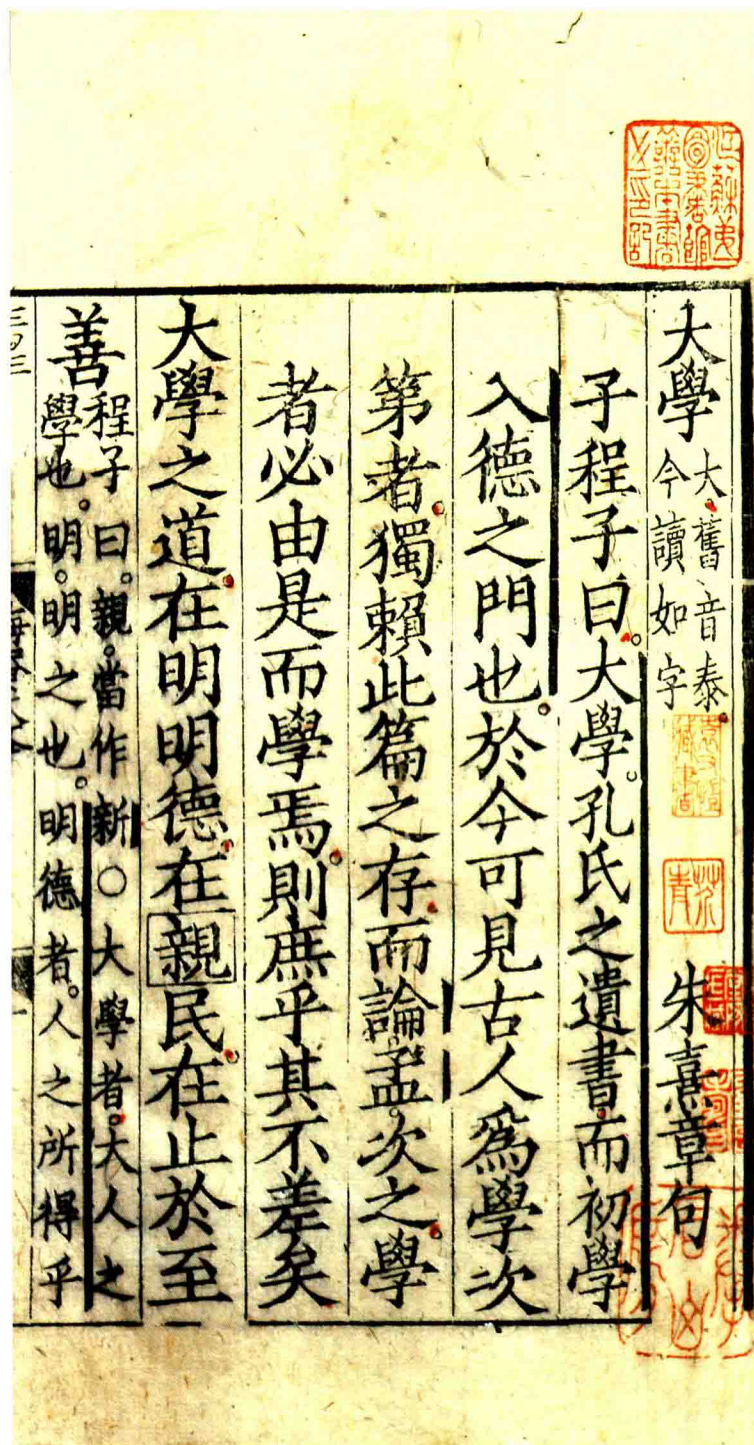 大學大舊音泰今讀如字 朱熹章句
子程子曰。大學。孔氏之遺書。而初學
入德之門也。於今可見古人爲學次
第者。獨賴此篇之存。而論孟次之。學
者必由是而學焉。則庶乎其不差矣
大學之道。在明明德。在親民。在止於至
善程子曰。親。當作新○大學者。大人之
學也。明。明之也。明德者。人之所得乎